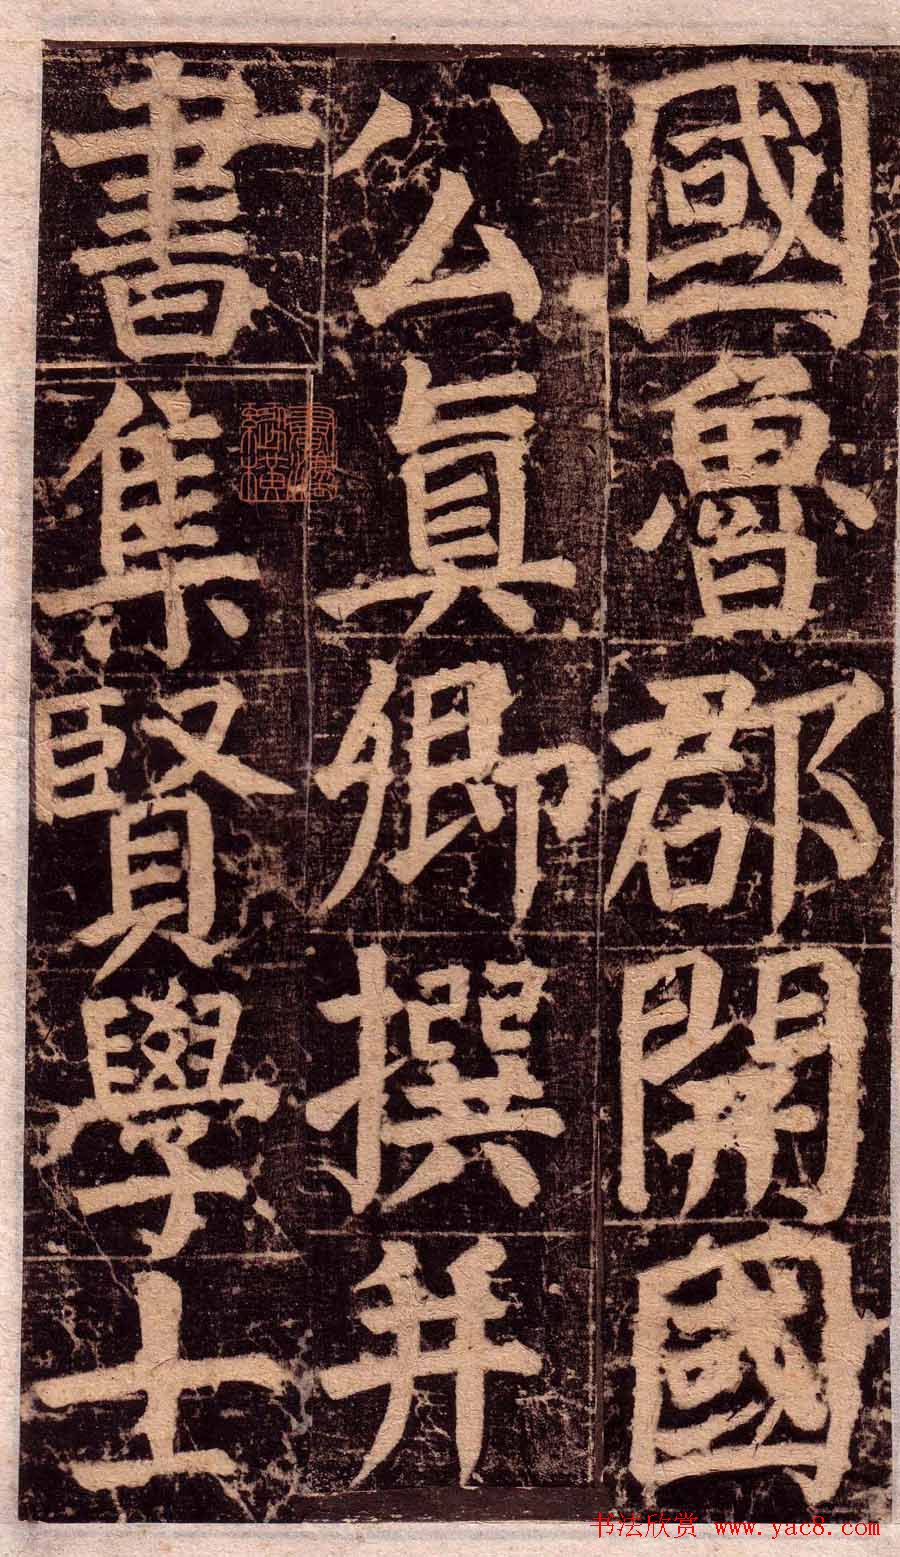 國魯郡開國
公真卿撰并
書集賢學士
书法欣赏 www.yac8.com